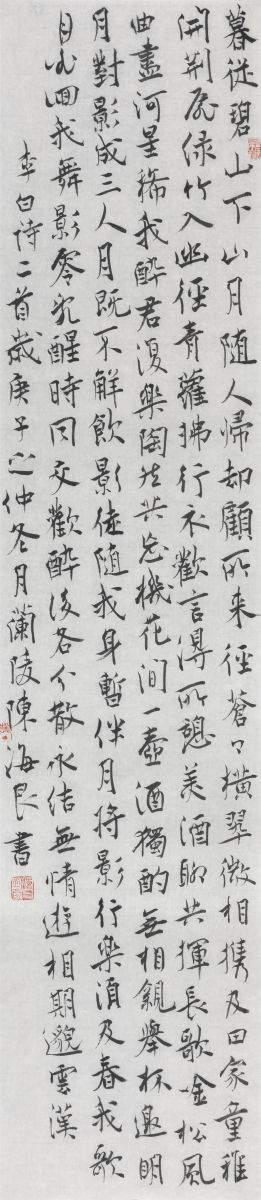 暮從碧山下山月隨人歸却顧所来徑蒼々橫翠微相攜及田家童稚
開荆扉绿竹入幽徑青蘿拂行衣歡言得所憩美酒聊共揮長歌吟松風
曲盡河星稀我醉君復樂陶然共忘機花間一壺酒獨酌無相親舉杯邀明
月對影成三人月既不解飲影徒隨我身暫伴月將影行樂須及春我歌
月徘徊我舞影零亂醒時同交歡醉後各分散永結無情遊相期邈雲漢
李白诗二首歲庚子之仲冬月蘭陵陳海良書